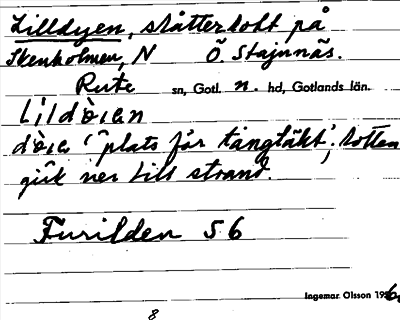 Lilldyen, slåtterlott på
Stenholmen, N Ö. Stajnnäs.
Rute sn, Gotl. n. hd, Gotlands län.
Lildὸien
dὸiε 'plats för tångtäkt'; lotten
gick ner till strand.
Furilden 56
Ingemar Olsson 1956
8